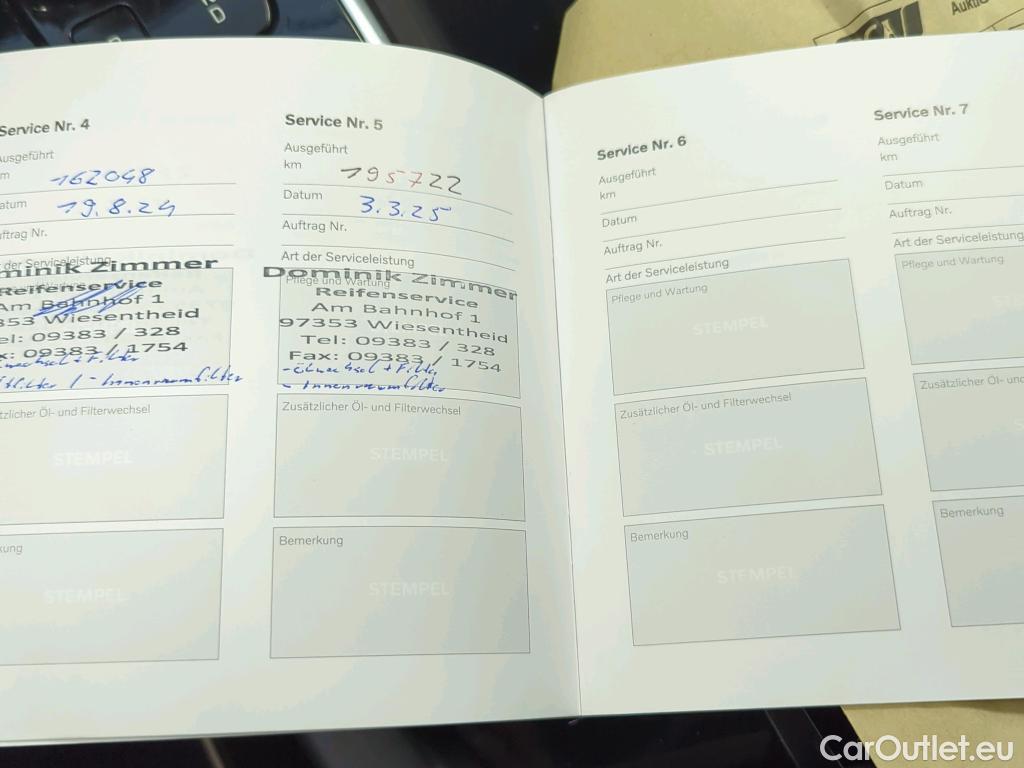 Service Nr. 4
Ausgeführt
162048
19.8.24
Zimmer
Reifenservice
Am Bahnhof 1
Wiesentheid
09383 / 328
09383 / 1754
Innenraumfilter
Öl- und Filterwechsel
STEMPEL
STEMPEL
Service Nr. 5
Ausgeführt
km 195722
Datum 3.3.25
Auftrag Nr.
Art der Serviceleistung
Pflege und Wartung
Dominik Zimmer
Reifenservice
Am Bahnhof 1
97353 Wiesentheid
Tel: 09383 / 328
Fax: 09383 / 1754
- Ölwechsel + Filter
- Innenraumfilter
Zusätzlicher Öl- und Filterwechsel
STEMPEL
Bemerkung
STEMPEL
Service Nr. 6
Ausgeführt
km
Datum
Auftrag Nr.
Art der Serviceleistung
Pflege und Wartung
STEMPEL
Zusätzlicher Öl- und Filterwechsel
STEMPEL
Bemerkung
STEMPEL
Service Nr. 7
Ausgeführt
km
Datum
Auftrag Nr.
Art der Serviceleistung
Pflege und Wartung
Zusätzlicher Öl- und
Bemerkung
CarOutlet.eu